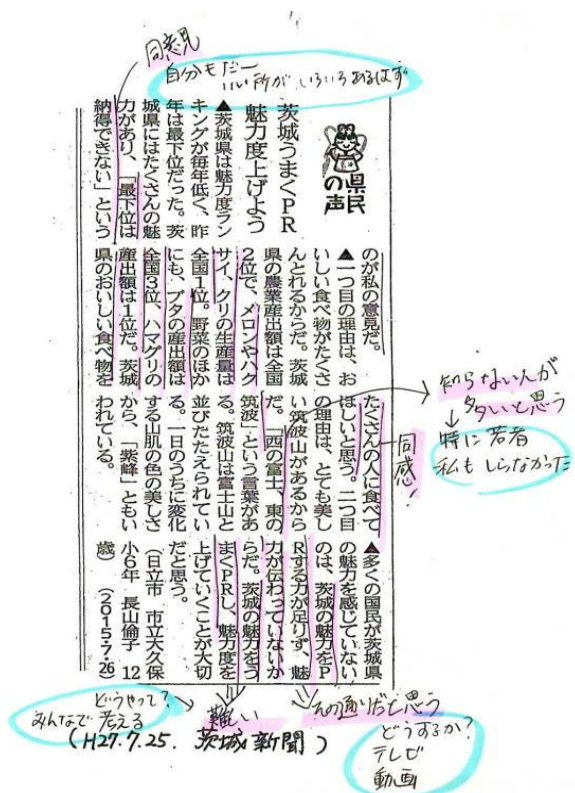 同意見
自分もだー
いい所が いろいろあるはず
県民
の声
茨城うまくPR
魅力度上げよう
▲茨城県は魅力度ラン
キングが毎年低く、昨
年は最下位だった。茨
城県にはたくさんの魅
力があり、「最下位は
納得できない」という
のが私の意見だ。
▲一つ目の理由は、お
いしい食べ物がたくさ
んとれるからだ。茨城
県の農業産出額は全国
2位で、メロンやハク
サイ、クリの生産量は
全国1位。野菜のほか
にも、ブタの産出額は
全国3位、ハマグリの
産出額は1位だ。茨城
県のおいしい食べ物を
たくさんの人に食べて
ほしいと思う。二つ目
の理由は、とても美し
い筑波山があるから
だ。「西の富士、東の
筑波」という言葉があ
る。筑波山は富士山と
並びたたえられてい
る。一日のうちに変化
する山肌の色の美しさ
から、「紫峰」ともい
われている。
▲多くの国民が茨城県
の魅力を感じていない
のは、茨城の魅力をP
Rする力が足りず、魅
力が伝わっていないか
らだ。茨城の魅力をう
まくPRし、魅力度を
上げていくことが大切
だと思う。
(日立市 市立大久保
小6年 長山倫子 12
歳) (2015・7・26)
知らない人が
多いと思う
特に若者
私もしらなかった
同感!
どうやって?
みんなで考える
難しい
その通りだと思う
どうするか?
テレビ
動画
(H27.7.25. 茨城新聞)